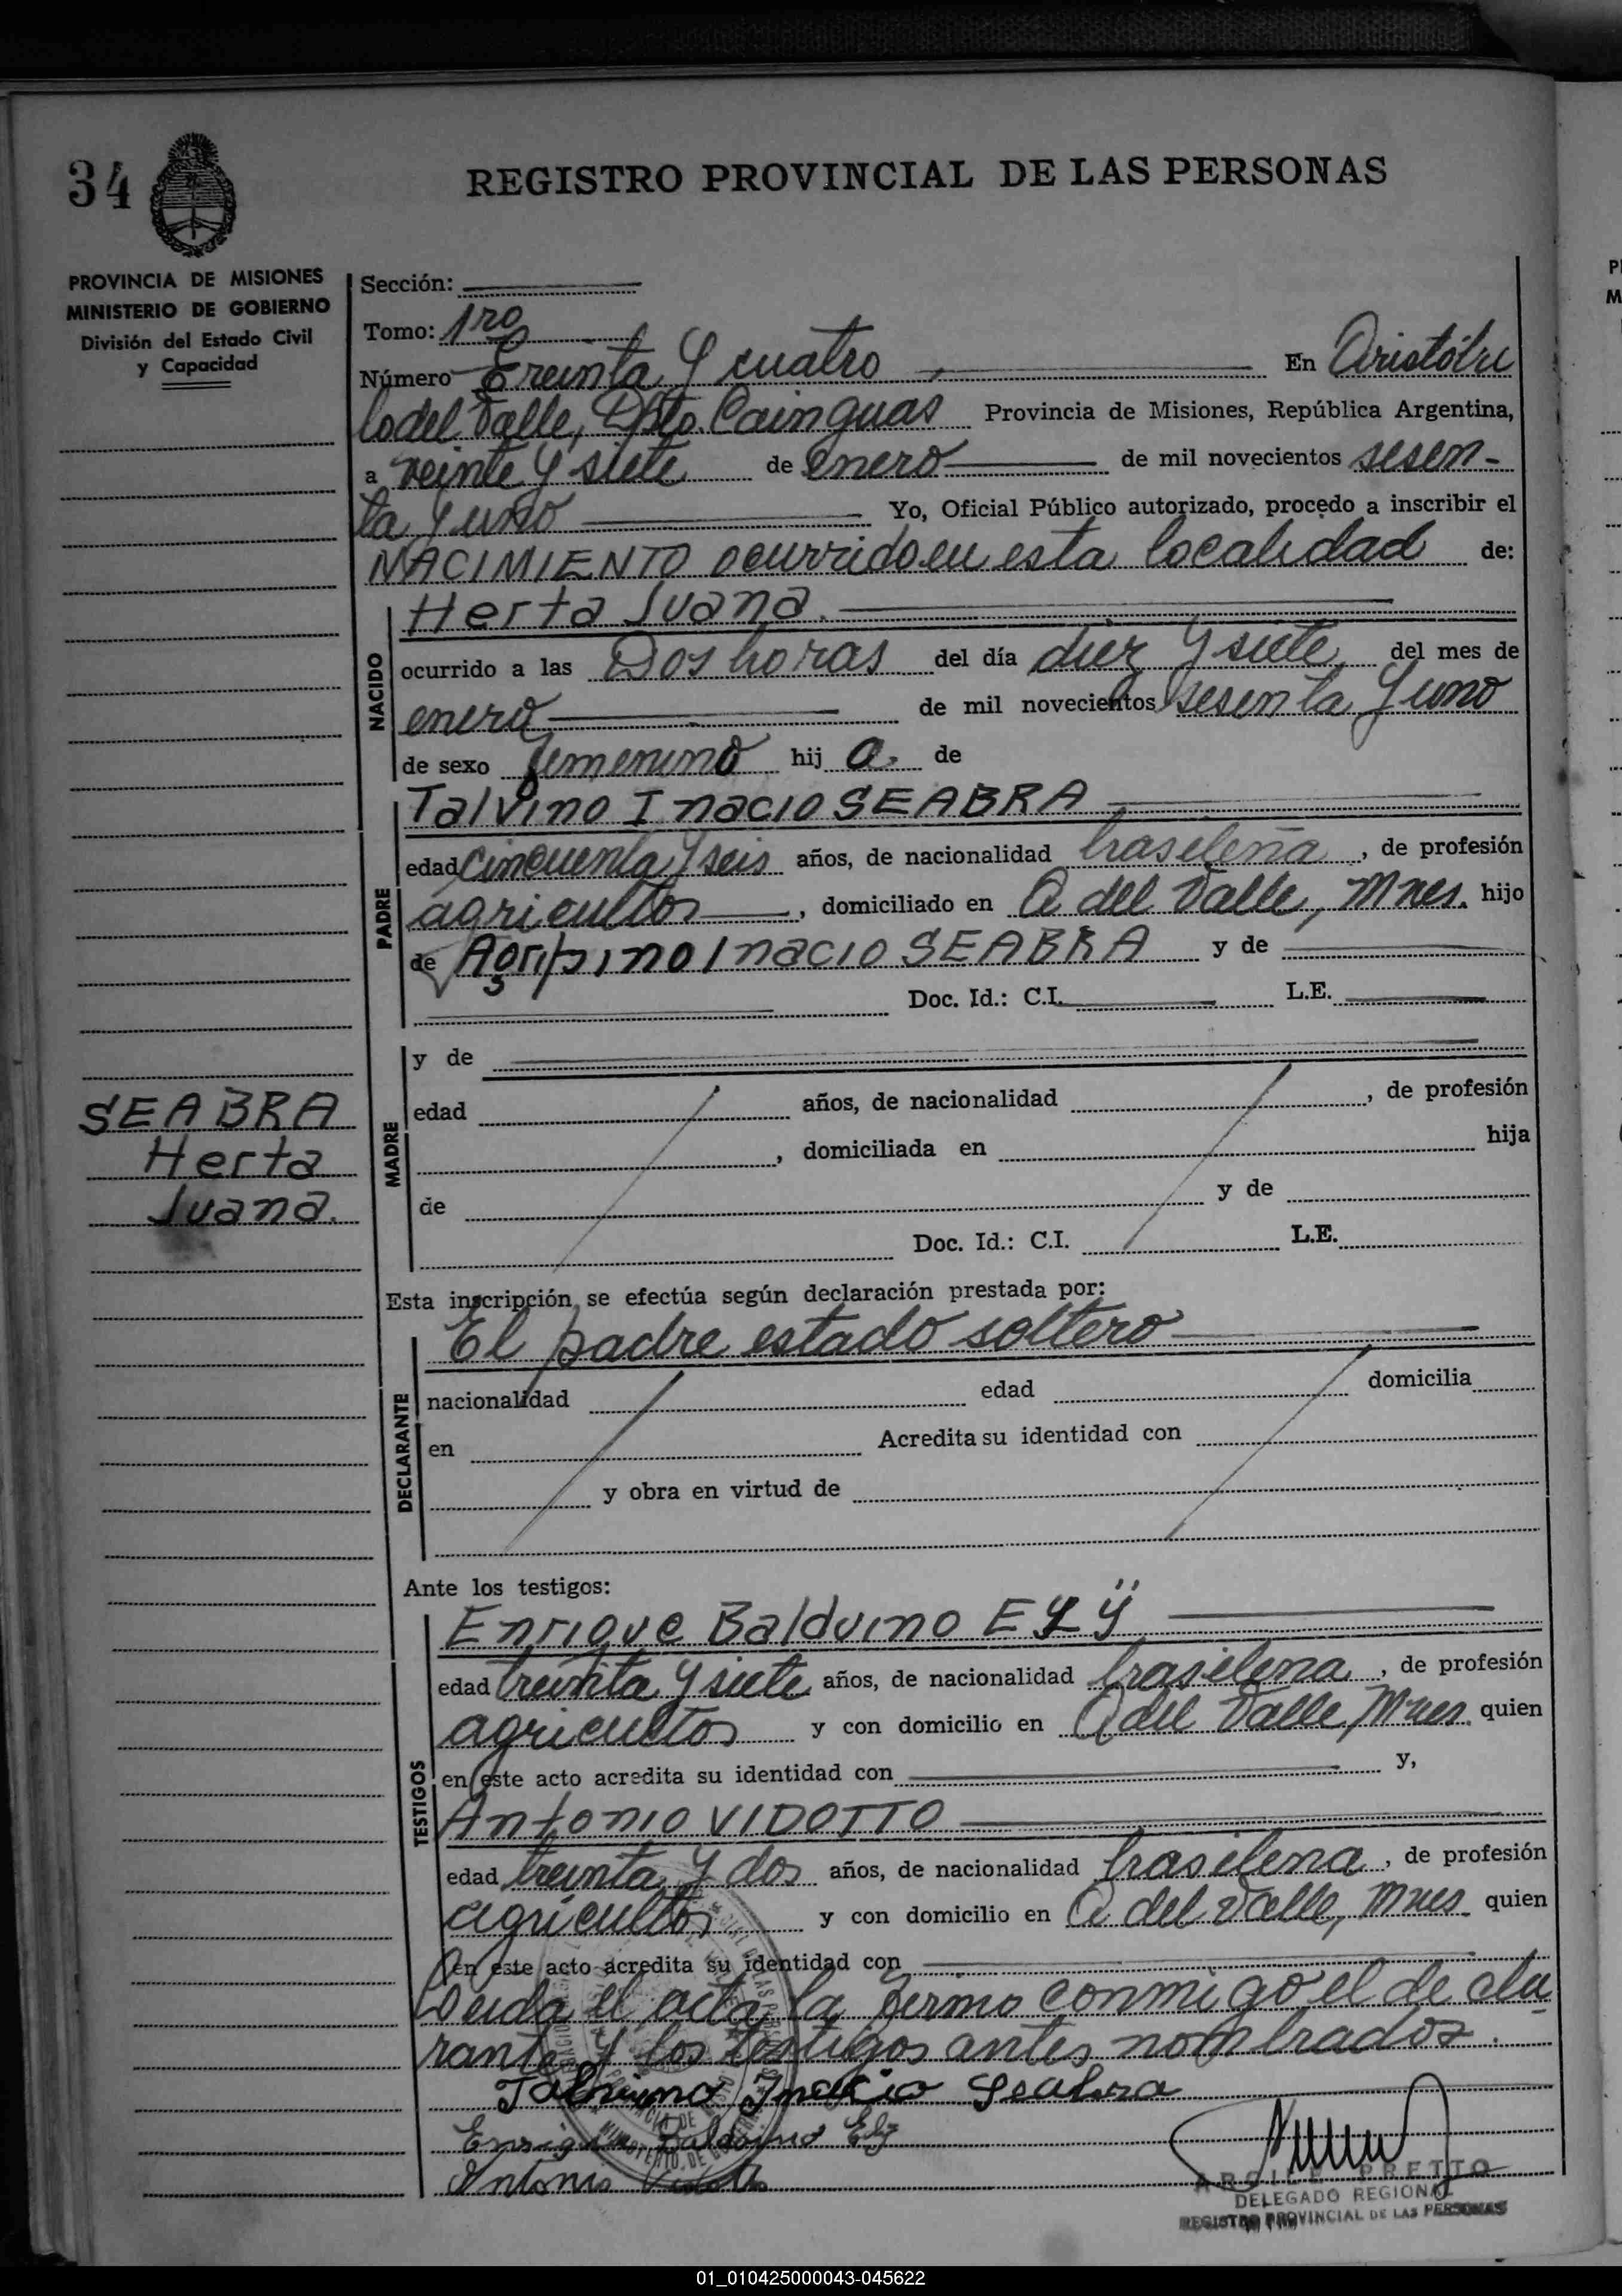 34
REGISTRO PROVINCIAL DE LAS PERSONAS
PROVINCIA DE MISIONES
MINISTERIO DE GOBIERNO
División del Estado Civil
y Capacidad
Sección:
Tomo: 1ro
Número Treinta y cuatro En Aristóbu
lo del Valle, Dpto. Cainguas Provincia de Misiones, República Argentina,
a veinte y siete de enero de mil novecientos sesen-
ta y uno Yo, Oficial Público autorizado, procedo a inscribir el
NACIMIENTO ocurrido en esta localidad de:
NACIDO
Herta Juana.
ocurrido a las Dos horas del día diez y siete del mes de
enero de mil novecientos sesenta y uno
de sexo femenino hij a. de
PADRE
Talvino Inacio SEABRA
edad cincuenta y seis años, de nacionalidad brasileña, de profesión
agricultor, domiciliado en A del Valle, Mnes. hijo
de Agripino Inacio SEABRA y de
Doc. Id.: C.I. L.E.
MADRE
y de
edad años, de nacionalidad , de profesión
, domiciliada en hija
de y de
Doc. Id.: C.I. L.E.
SEABRA
Herta
Juana.
Esta inscripción se efectúa según declaración prestada por:
DECLARANTE
El padre estado soltero
nacionalidad edad domicilia
en Acredita su identidad con
y obra en virtud de
Ante los testigos:
TESTIGOS
Enrique Balduino
edad treinta y siete años, de nacionalidad brasilena, de profesión
agricultor y con domicilio en A del Valle, Mnes. quien
en este acto acredita su identidad con y,
Antonio VIDOTTO
edad treinta y dos años, de nacionalidad brasilena, de profesión
agricultor y con domicilio en A del Valle, Mnes. quien
en este acto acredita su identidad con
Leida el acta la firmo conmigo el decla
rante y los testigos antes nombrados.
Talvino Inacio Seabra
Antonio Vidotto
PRETTO
DELEGADO REGIONAL
REGISTRO PROVINCIAL DE LAS PERSONAS
01_010425000043-045622